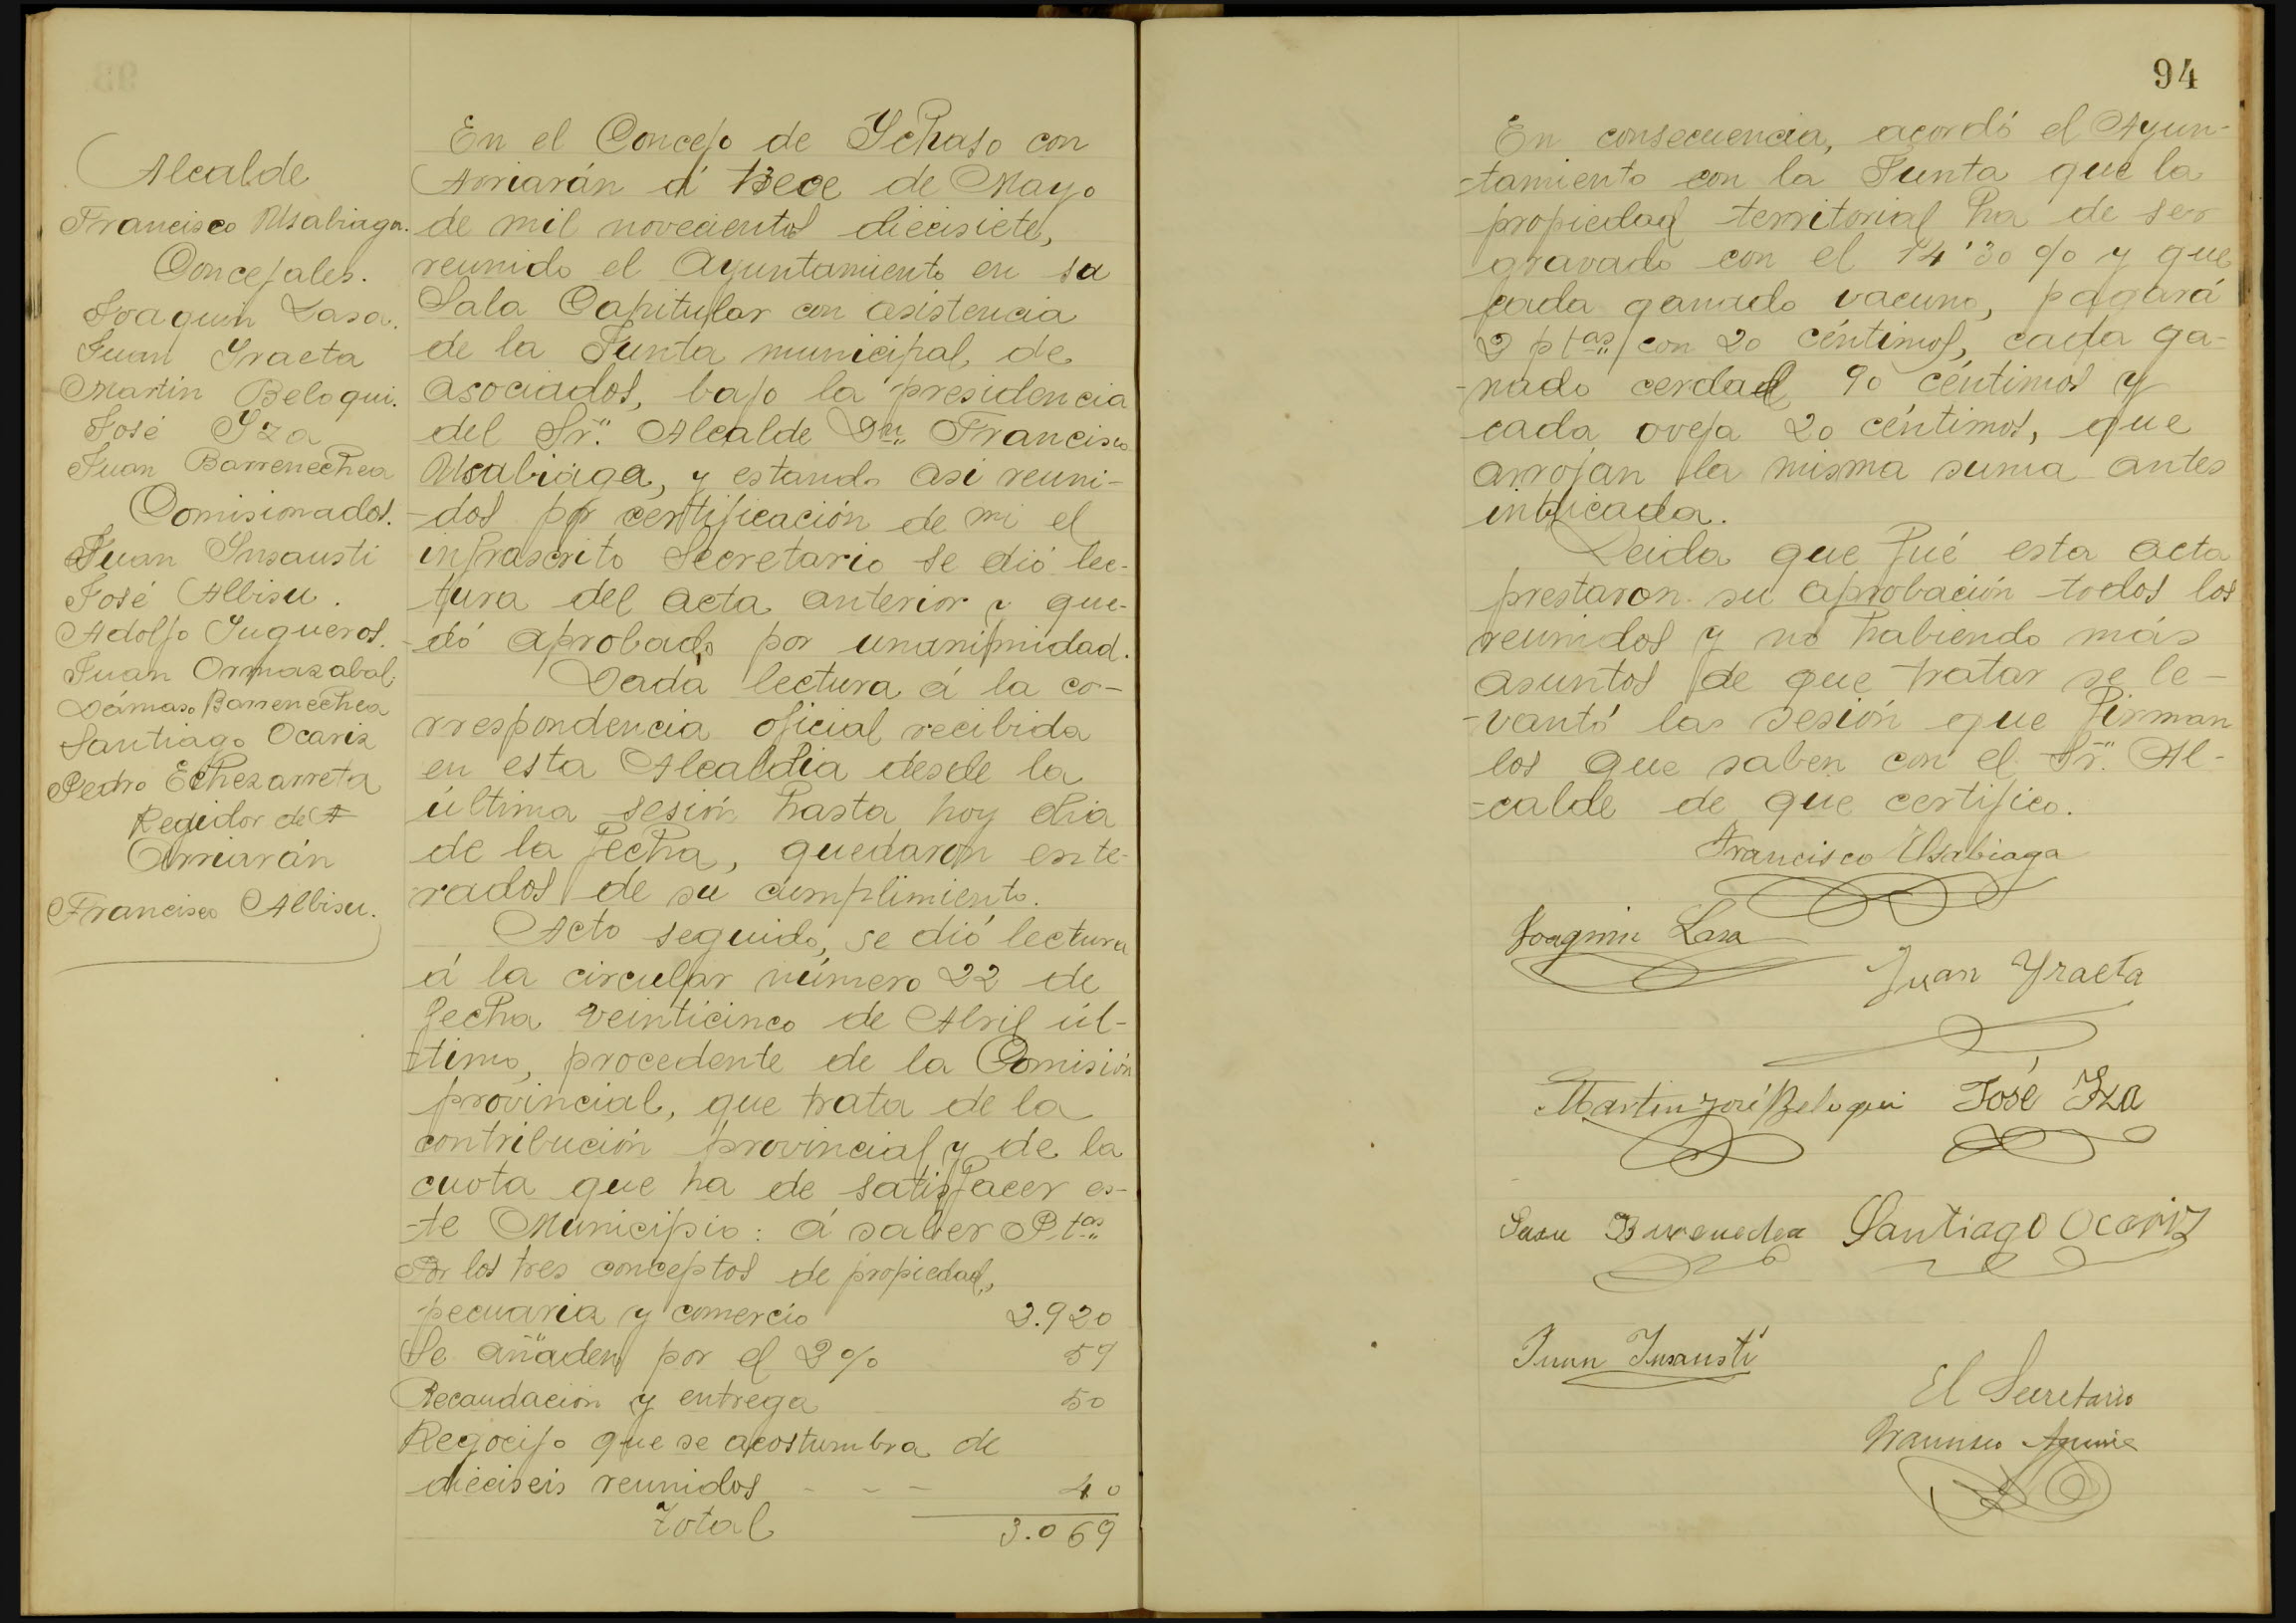 Alcalde
Francisco Usabiaga.
Concejales.
Joaquin Lasa.
Juan Yraeta
Martin Beloqui.
José Yza
Juan Barrenechea
Comisionados.
Juan Ynsausti
José Albisu.
Adolfo Jugueros.
Juan Ormazabal.
Dámaso Barrenechea
Santiago Ocariz
Pedro Echezarreta
Regidor de
Arriarán
Francisco Albisu.
En el Concejo de Ychaso con
Arriarán á trece de Mayo
de mil novecientos diecisiete,
reunido el Ayuntamiento en sa
Sala Capitular con asistencia
de la Junta municipal de
asociados, bajo la presidencia
del Sr. Alcalde Dn Francisco
Usabiaga, y estando asi reuni-
-dos por certificación de mi el
infrascrito Secretario se dió lec-
tura del acta anterior y que-
-dó aprobado por unanimidad.
Dada lectura á la co-
rrespondencia oficial recibida
en esta Alcaldia desde la
última sesión hasta hoy dia
de la fecha, quedaron ente-
rados de su cumplimiento.
Acto seguido, se dió lectura
á la circular número 22 de
fecha veinticinco de Abril úl-
-timo, procedente de la Comisión
provincial, que trata de la
contribución provincial y de la
cuota que ha de satisfacer es-
-te Municipio: á saber Ptas
Por los tres conceptos de propiedad,
pecuaria y comercio 2.920
Se añaden por el 2% 59
Recaudación y entrega 50
Regocijo que se acostumbra de
dieciseis reunidos - - - 40
Total 3.069
94
En consecuencia, acordó el Ayun-
-tamiento con la Junta que la
propiedad territorial ha de ser
gravado con el 14'30 % y que
cada ganado vacuno, pagará
2 ptas con 20 céntimos, cada ga-
-nado cerdad 90 céntimos y
cada oveja 20 céntimos, que
arrojan la misma suma antes
indicada.
Leida que fué esta acta
prestaron su aprobación todos los
reunidos y no habiendo más
asuntos de que tratar se le-
-vantó las sesión que firman
los que saben con el Sr. Al-
-calde de que certifico.
Francisco Usabiaga
Joaquin Lasa
Juan Yraeta
Martin José Beloqui José Yza
Juan Barenechea Santiago Ocariz
Juan Ynsausti
El Secretario
Francisco